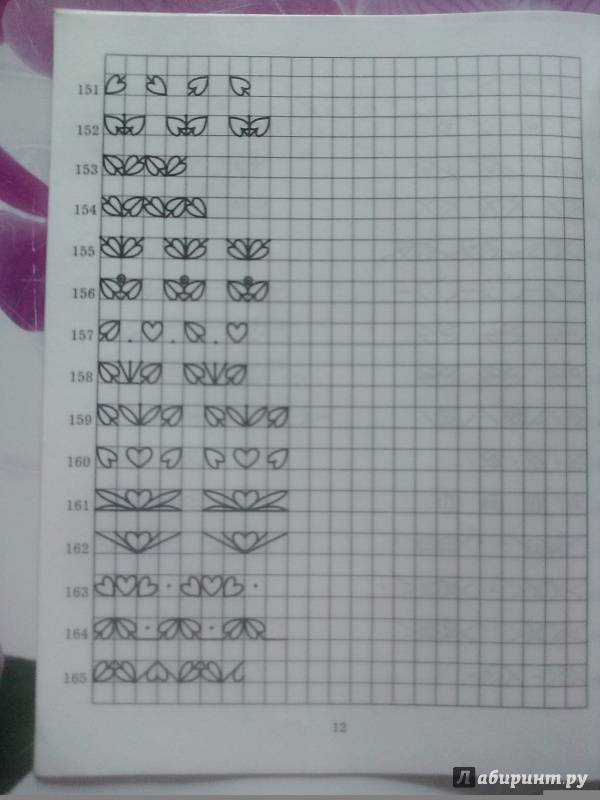 151
152
153
154
155
156
157
158
159
160
161
162
163
164
165
12
Лабиринт.ру